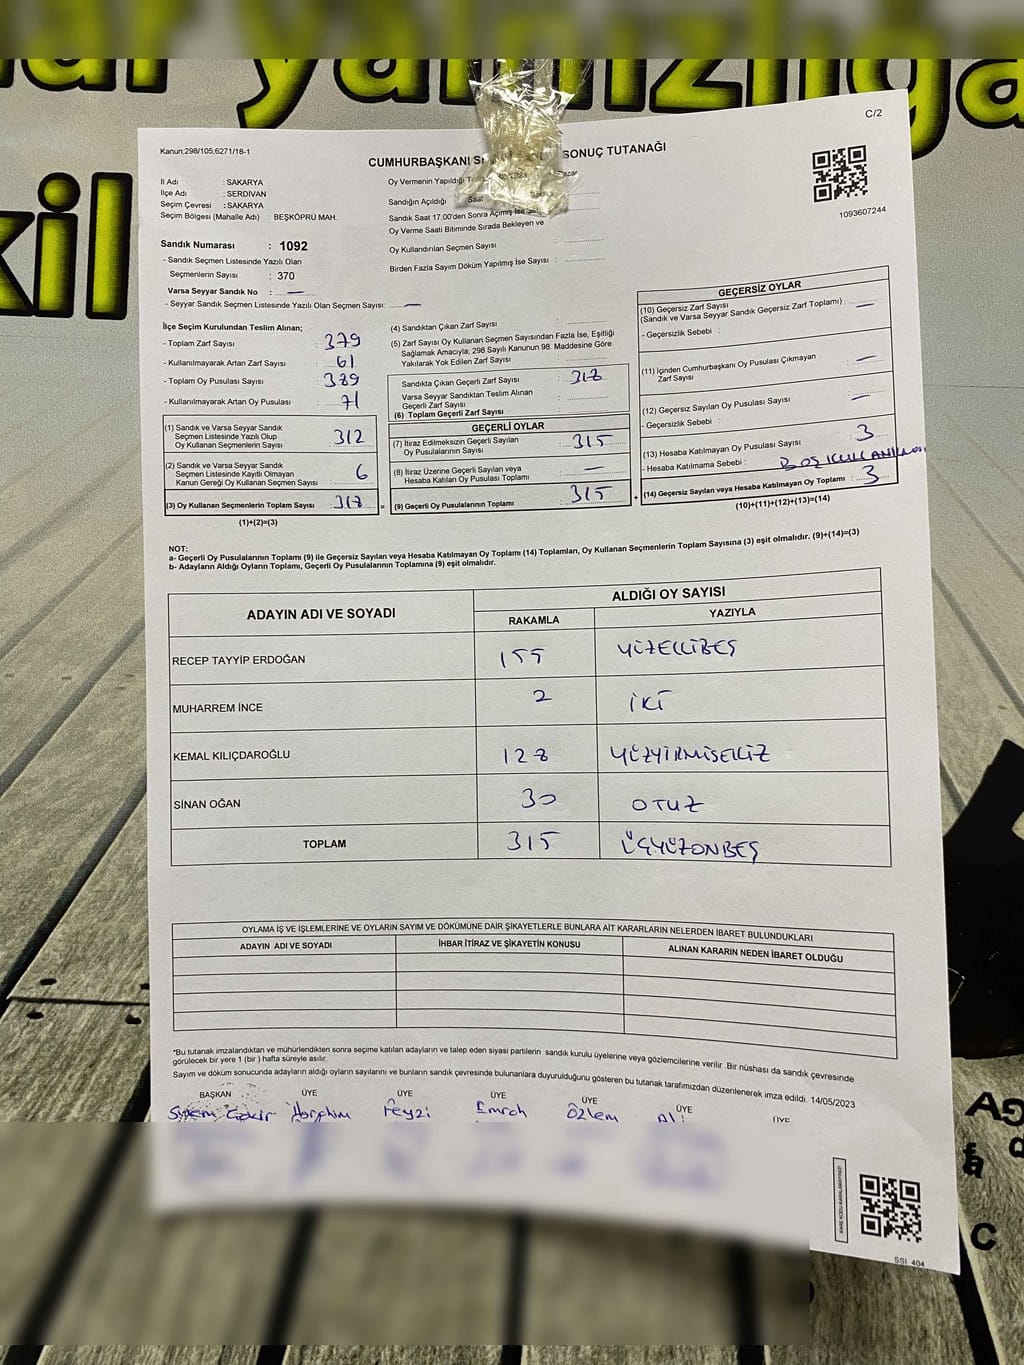 C/2
Kanun,298/105,6271/18-1
CUMHURBAŞKANI SONUÇ TUTANAĞI
İl Adı : SAKARYA
İlçe Adı : SERDİVAN
Seçim Çevresi : SAKARYA
Seçim Bölgesi (Mahalle Adı) : BEŞKÖPRÜ MAH.
Sandık Numarası : 1092
- Sandık Seçmen Listesinde Yazılı Olan
Seçmenlerin Sayısı : 370
Varsa Seyyar Sandık No : —
- Seyyar Sandık Seçmen Listesinde Yazılı Olan Seçmen Sayısı: —
Oy Vermenin Yapıldığı
Sandığın Açıldığı Saat
Sandık Saat 17:00'den Sonra Açılmış İse
Oy Verme Saati Bitiminde Sırada Bekleyen ve
Oy Kullandırılan Seçmen Sayısı :
Birden Fazla Sayım Döküm Yapılmış İse Sayısı :
1093607244
İlçe Seçim Kurulundan Teslim Alınan;
- Toplam Zarf Sayısı : 379
- Kullanılmayarak Artan Zarf Sayısı : 61
- Toplam Oy Pusulası Sayısı : 389
- Kullanılmayarak Artan Oy Pusulası : 71
(1) Sandık ve Varsa Seyyar Sandık
Seçmen Listesinde Yazılı Olup
Oy Kullanan Seçmenlerin Sayısı : 312
(2) Sandık ve Varsa Seyyar Sandık
Seçmen Listesinde Kayıtlı Olmayan
Kanun Gereği Oy Kullanan Seçmen Sayısı : 6
(3) Oy Kullanan Seçmenlerin Toplam Sayısı : 318
(1)+(2)=(3)
(4) Sandıktan Çıkan Zarf Sayısı :
(5) Zarf Sayısı Oy Kullanan Seçmen Sayısından Fazla İse, Eşitliği
Sağlamak Amacıyla; 298 Sayılı Kanunun 98. Maddesine Göre
Yakılarak Yok Edilen Zarf Sayısı :
Sandıkta Çıkan Geçerli Zarf Sayısı : 318
Varsa Seyyar Sandıktan Teslim Alınan
Geçerli Zarf Sayısı :
(6) Toplam Geçerli Zarf Sayısı :
GEÇERLİ OYLAR
(7) İtiraz Edilmeksizin Geçerli Sayılan
Oy Pusulalarının Sayısı : 315
(8) İtiraz Üzerine Geçerli Sayılan veya
Hesaba Katılan Oy Pusulası Toplamı : —
(9) Geçerli Oy Pusulalarının Toplamı : 315
GEÇERSİZ OYLAR
(10) Geçersiz Zarf Sayısı
(Sandık ve Varsa Seyyar Sandık Geçersiz Zarf Toplamı) : —
- Geçersizlik Sebebi :
(11) İçinden Cumhurbaşkanı Oy Pusulası Çıkmayan
Zarf Sayısı : —
(12) Geçersiz Sayılan Oy Pusulası Sayısı : —
- Geçersizlik Sebebi :
(13) Hesaba Katılmayan Oy Pusulası Sayısı : 3
- Hesaba Katılmama Sebebi : BOŞ KULLANILMIŞ
(14) Geçersiz Sayılan veya Hesaba Katılmayan Oy Toplamı : 3
(10)+(11)+(12)+(13)=(14)
NOT:
a- Geçerli Oy Pusulalarının Toplamı (9) ile Geçersiz Sayılan veya Hesaba Katılmayan Oy Toplamı (14) Toplamları, Oy Kullanan Seçmenlerin Toplam Sayısına (3) eşit olmalıdır. (9)+(14)=(3)
b- Adayların Aldığı Oyların Toplamı, Geçerli Oy Pusulalarının Toplamına (9) eşit olmalıdır.
ADAYIN ADI VE SOYADI ALDIĞI OY SAYISI
RAKAMLA YAZIYLA
RECEP TAYYİP ERDOĞAN 155 YÜZELLİBEŞ
MUHARREM İNCE 2 İKİ
KEMAL KILIÇDAROĞLU 128 YÜZYİRMİSEKİZ
SİNAN OĞAN 30 OTUZ
TOPLAM 315 ÜÇYÜZONBEŞ
OYLAMA İŞ VE İŞLEMLERİNE VE OYLARIN SAYIM VE DÖKÜMÜNE DAİR ŞİKAYETLERLE BUNLARA AİT KARARLARIN NELERDEN İBARET BULUNDUKLARI
ADAYIN ADI VE SOYADI İHBAR İTİRAZ VE ŞİKAYETİN KONUSU ALINAN KARARIN NEDEN İBARET OLDUĞU
*Bu tutanak imzalandıktan ve mühürlendikten sonra seçime katılan adayların ve talep eden siyasi partilerin sandık kurulu üyelerine veya gözlemcilerine verilir. Bir nüshası da sandık çevresinde
görülecek bir yere 1 (bir ) hafta süreyle asılır.
Sayım ve döküm sonucunda adayların aldığı oyların sayılarını ve bunların sandık çevresinde bulunanlara duyurulduğunu gösteren bu tutanak tarafımızdan düzenlenerek imza edildi. 14/05/2023
BAŞKAN ÜYE ÜYE ÜYE ÜYE ÜYE ÜYE
İbrahim Feyzi Emrah Özlem Ali
SSI 404